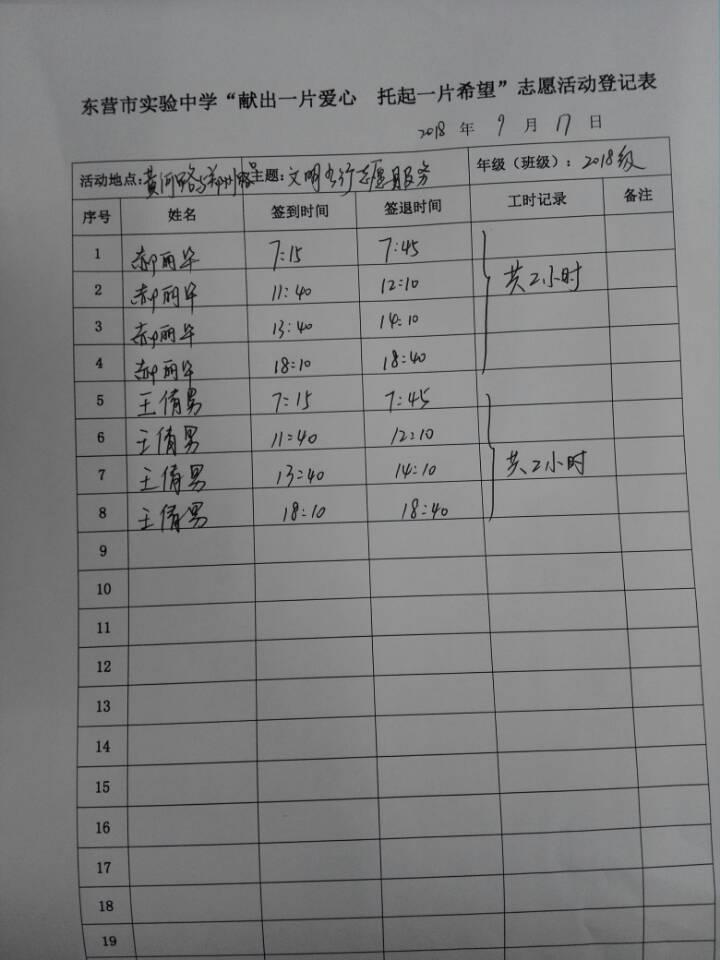 东营市实验中学“献出一片爱心 托起一片希望”志愿活动登记表
2018 年 9 月 17 日
活动地点：黄河路与郑州路 主题：文明出行志愿服务 年级（班级）：2018级
序号 姓名 签到时间 签退时间 工时记录 备注
1 郝丽华 7:15 7:45
2 郝丽华 11:40 12:10 共2小时
3 郝丽华 13:40 14:10
4 郝丽华 18:10 18:40
5 王倩男 7:15 7:45
6 王倩男 11:40 12:10
7 王倩男 13:40 14:10 共2小时
8 王倩男 18:10 18:40
9
10
11
12
13
14
15
16
17
18
19